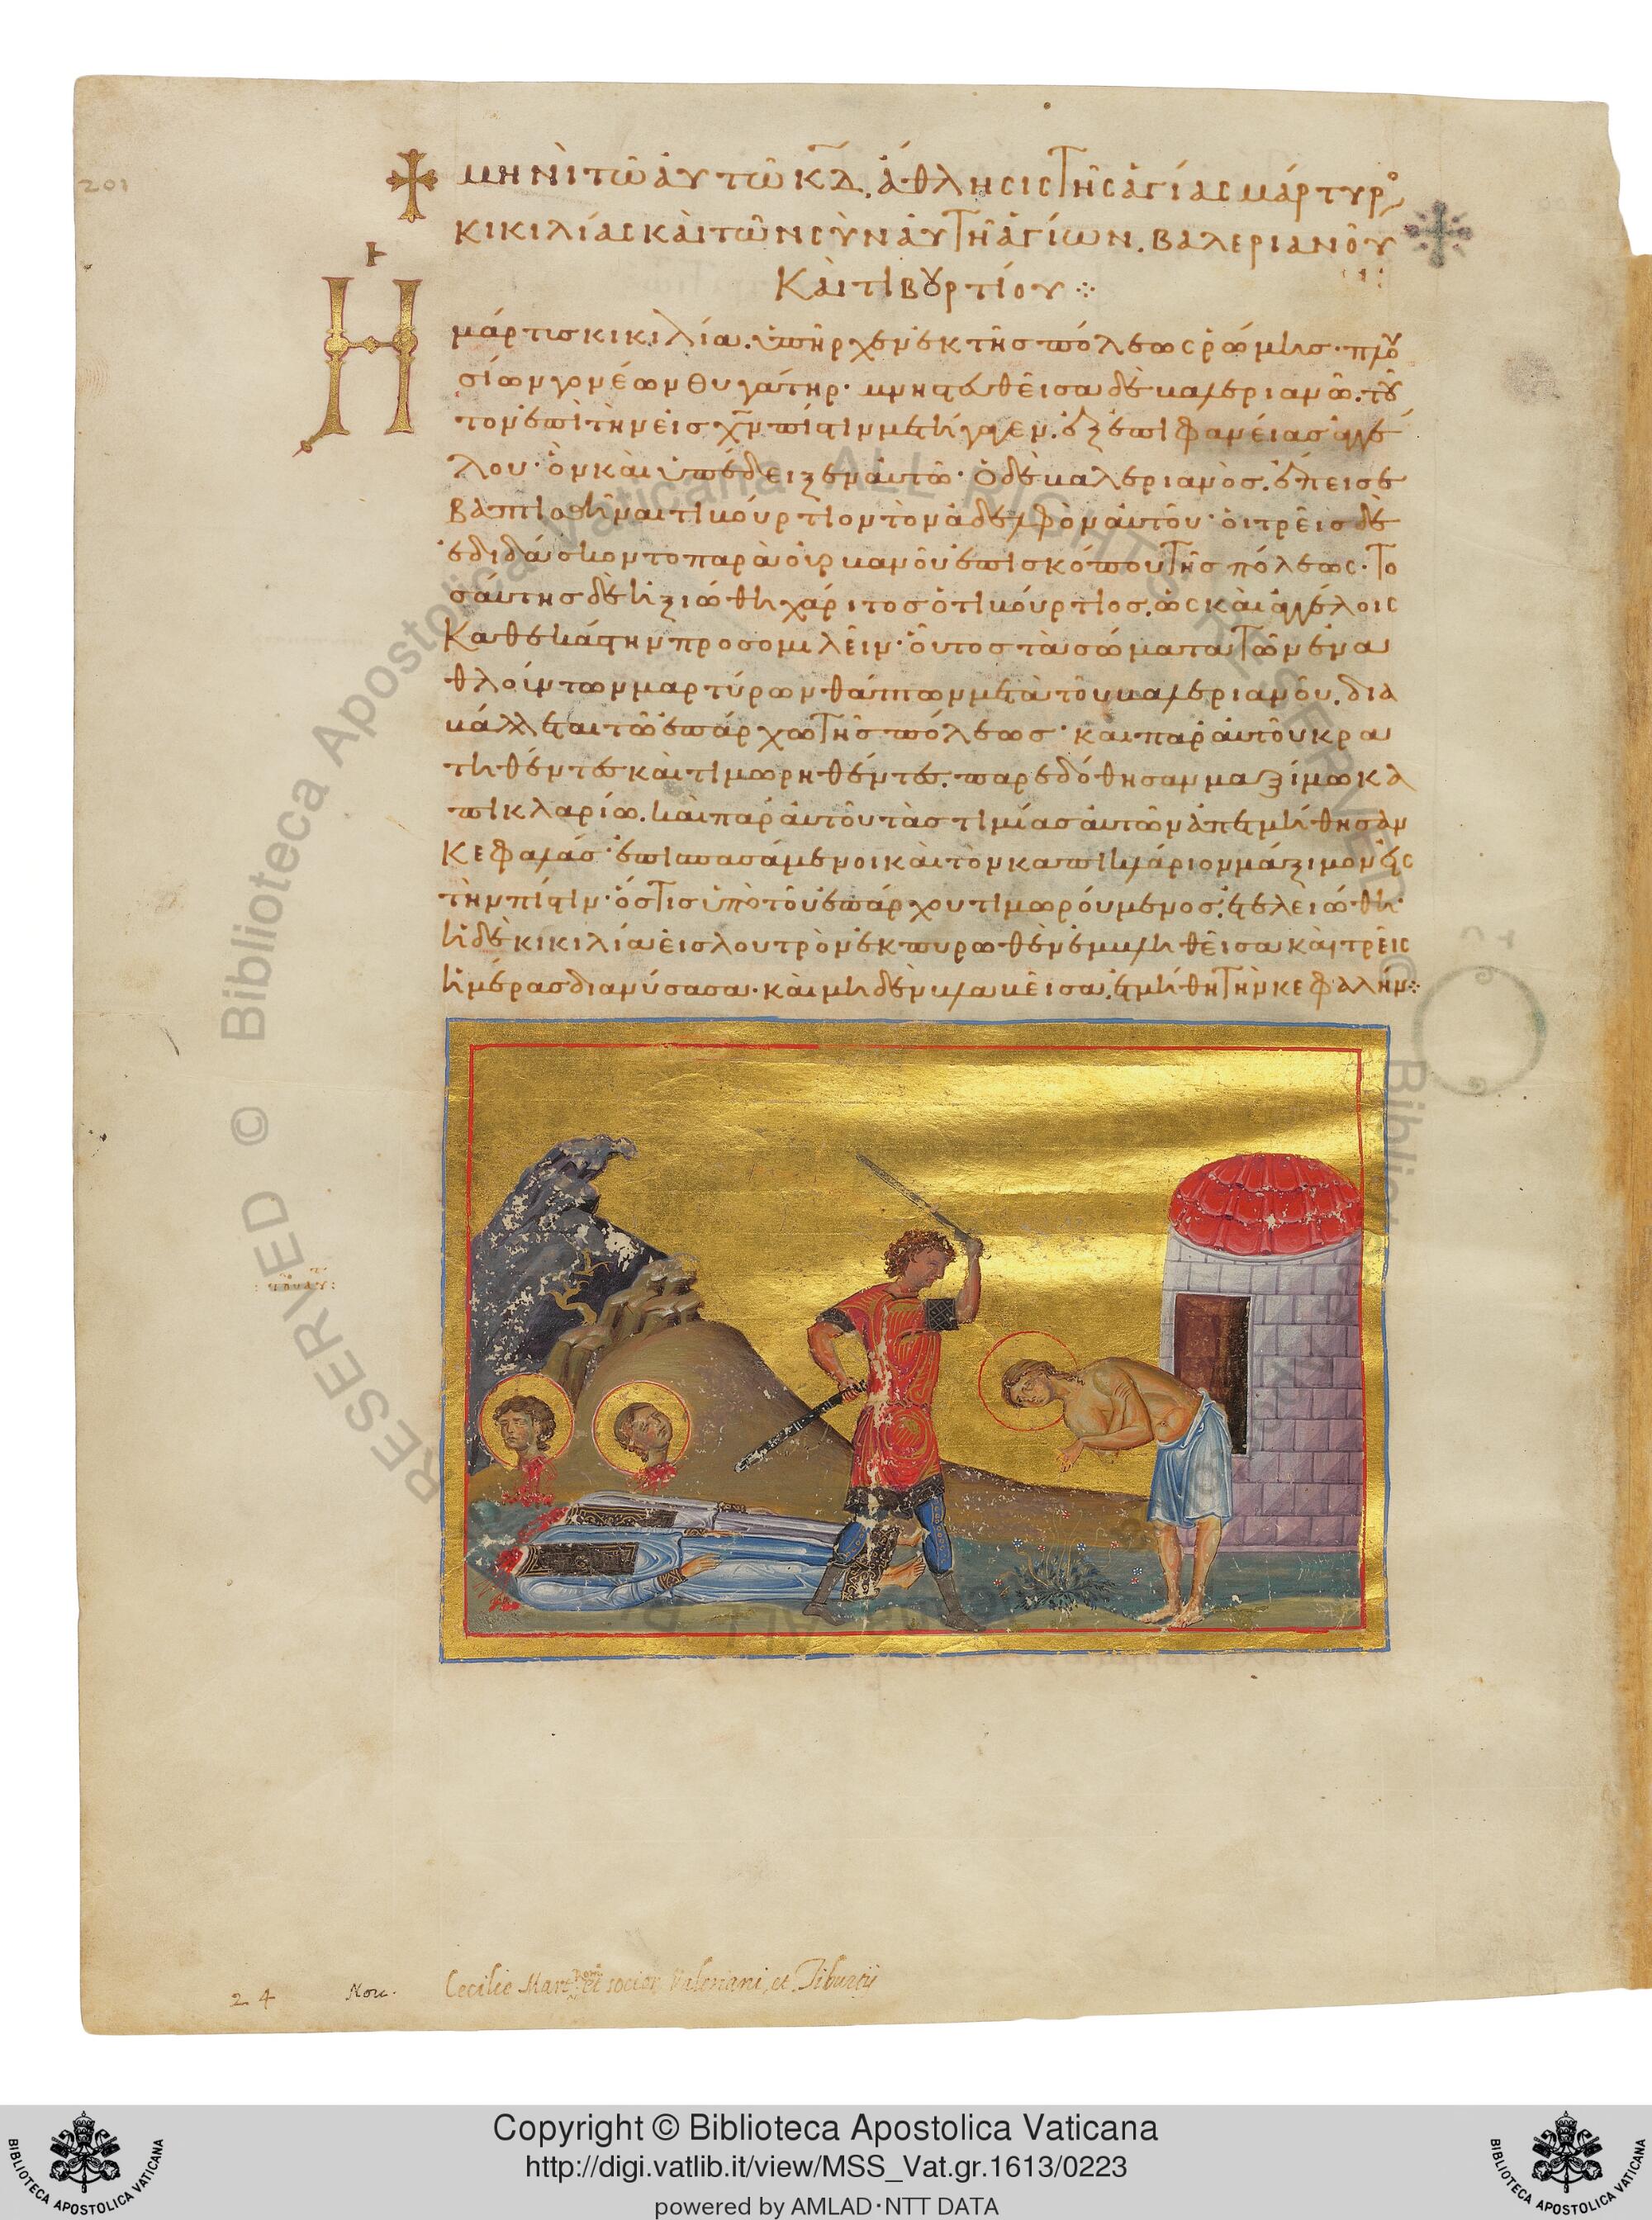 201
μηνὶ τῶ ἀυτῶ κδ, ἄθλησις τῆς ἁγίας μάρτυρο
κικιλίας καὶ τῶν σὺν ἀυτῆ ἁγίων. βαλεριανοῦ
καὶ τιβουρτίου
Ἡ μάρτυς κικιλία. ὑπῆρχεν ἐκ τῆς πόλεως ῥώμης· πλου
σίων γονέων θυγάτηρ· μνηστευθεῖσα δὲ βαλεριανῶ. τοῦ
τον ἐπὶ τὴν εἰς χν πίστιν μετήγαγεν. ἐξ ἐπιφανείας ἀγγέ
λου· ὃν καὶ ὑπέδειξεν ἀυτῶ· ὁ δὲ βαλεριανὸς. ἔπεισε
βαπτισθῆναι τιβούρτιον τὸν ἀδελφὸν ἀυτοῦ· ὁι τρεῖς δὲ
ἐδιδάσκοντο παρὰ οὐρβανοῦ ἐπισκόπου τῆς πόλεως· το
σάυτης δὲ ἠξιώθη χάριτος ὁ τιβούρτιος. ὡς καὶ ἀγγέλοις
καθεκάστην προσομιλεῖν· ὅυτος τὰ σώματα τῶν ἐνα
θλούντων μαρτύρων θάπτων μετὰ τοῦ βαλεριανοῦ. δια
βάλλεται τῶ ἐπάρχω τῆς πόλεως· καὶ παρ ἀυτοῦ κρα
τηθέντες καὶ τιμωρηθέντες. παρεδόθησαν μαξίμω κα
πικλαρίω. καὶ παρ ἀυτοῦ τὰς τιμίας ἀυτῶν ἀπετμήθησαν
κεφαλάς· ἐπισπασάμενοι καὶ τὸν καπικλάριον μάξιμον εἰς
τὴν πίστιν· ὅστις ὑπὸ τοῦ ἐπάρχου τιμωρούμενος. ἐτελειώθη·
ἡ δὲ κικιλία εἰς λουτρὸν ἐκπυρωθὲν ἐμβληθεῖσα καὶ τρεῖς
ἡμέρας διανύσασα· καὶ μηδὲν βλαβεῖσα. ἐτμήθη τὴν κεφαλήν
24 Nou. Cecilie Mart. et socior. Valeriani, et Tiburtij
Copyright © Biblioteca Apostolica Vaticana
http://digi.vatlib.it/view/MSS_Vat.gr.1613/0223
powered by AMLAD·NTT DATA
BIBLIOTECA APOSTOLICA VATICANA
BIBLIOTECA APOSTOLICA VATICANA
RESERVED © Biblioteca Apostolica Vaticana ALL RIGHTS RESERVED ©